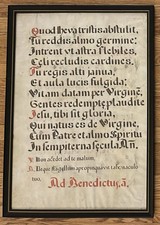 Quod Heva tristis abstulit,
Tu reddis almo germine;
Intrent ut astra flebiles,
Cæli recludis cardines.
Tu regis alti janua,
Et aula lucis fulgida;
Vitam datam per Virginē,
Gentes redemptę plaudite
Jesu, tibi sit gloria,
Qui natus es de Virgine,
Cum Patre et almo Spiritu
In sempiterna sęcula. Am̄.
V. Non accedet ad te malum.
R. Et flagellum appropinquavit tabernaculo
tuo.
Ad Benedictus, ā.